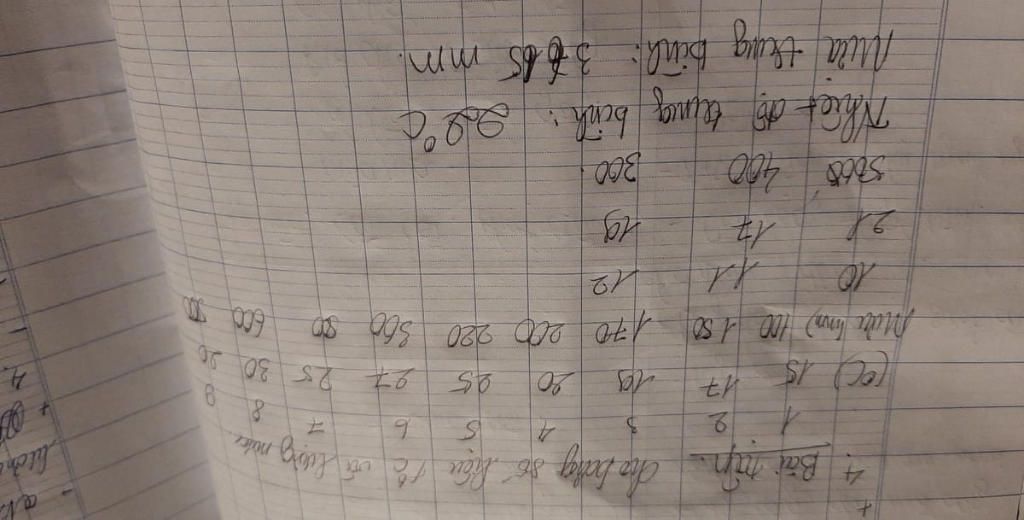 4. Bài tập. Cho bảng số liệu t°C và lượng mưa.
1 2 3 4 5 6 7 8 9
(°C) 15 17 19 20 25 27 25 30 20
Mưa (mm) 100 150 170 200 220 300 600
10 11 12
21 17 19
500 400 300
Nhiệt độ trung bình: 22°C
Mưa trung bình: mm.